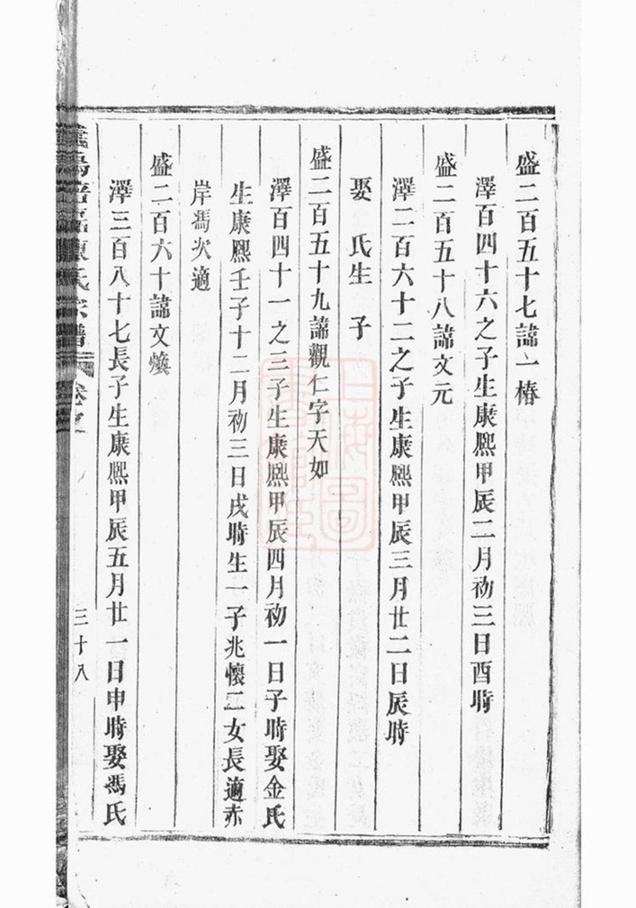 盛二百五十七諱一椿
澤百四十六之子生康熙甲辰二月初三日酉時
盛二百五十八諱文元
澤二百六十二之子生康熙甲辰三月廿二日辰時
娶 氏生 子
盛二百五十九諱觀仁字天如
澤百四十一之三子生康熙甲辰四月初一日子時娶金氏
生康熙壬子十二月初三日戌時生一子兆懷二女長適赤
岸馮次適
盛二百六十諱文煥
澤三百八十七長子生康熙甲辰五月廿一日申時娶馮氏
氏宗譜
三十八